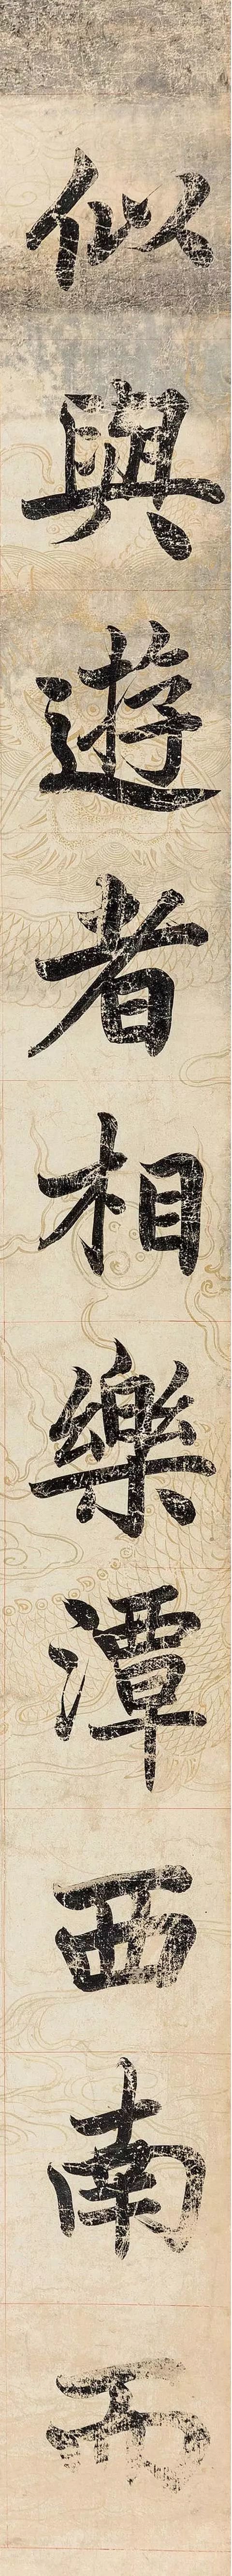 似與遊者相樂潭西南而